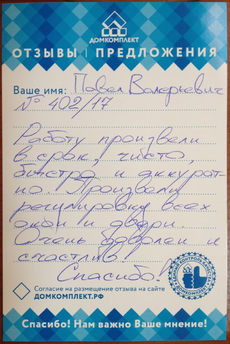 ДОМКОМПЛЕКТ
ОТЗЫВЫ | ПРЕДЛОЖЕНИЯ
Ваше имя: Павел Валерьевич
№ 402/17
Работу произвели
в срок, чисто,
быстро и аккурат-
но. Произвели
регулировку всех
окон и двери.
Очень доволен и
счастлив.
Спасибо!
Согласие на размещение отзыва на сайте
ДОМКОМПЛЕКТ.РФ
Спасибо! Нам важно Ваше мнение!